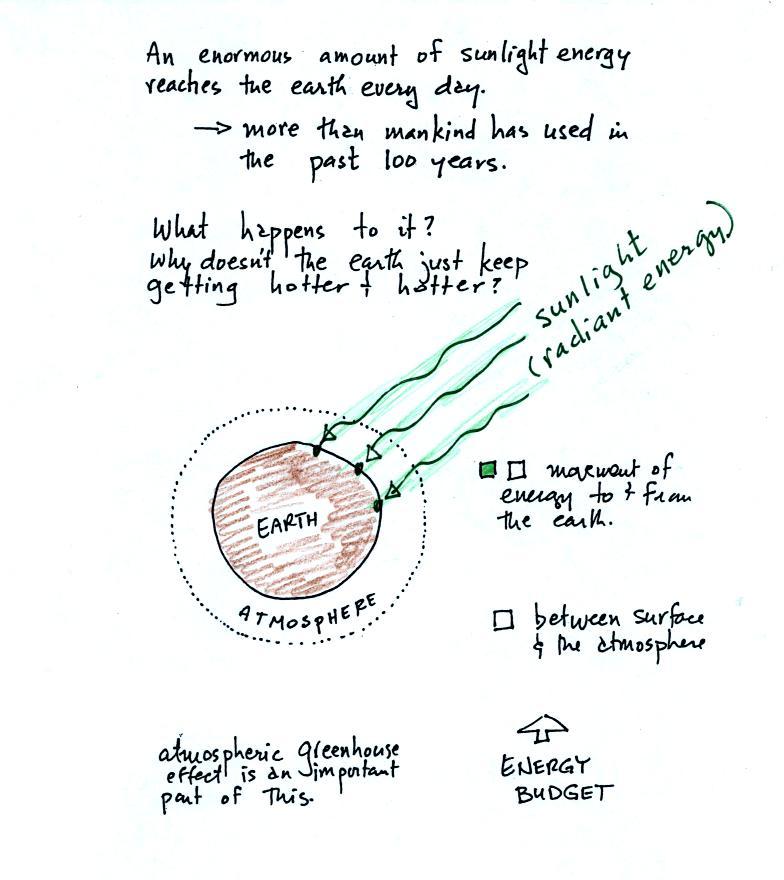 An enormous amount of sunlight energy
reaches the earth every day.
→ more than mankind has used in
the past 100 years.
What happens to it?
Why doesn't the earth just keep
getting hotter & hotter?
sunlight
(radiant energy)
EARTH
ATMOSPHERE
movement of
energy to & from
the earth.
between surface
& the atmosphere
atmospheric greenhouse
effect is an important
part of this.
ENERGY
BUDGET